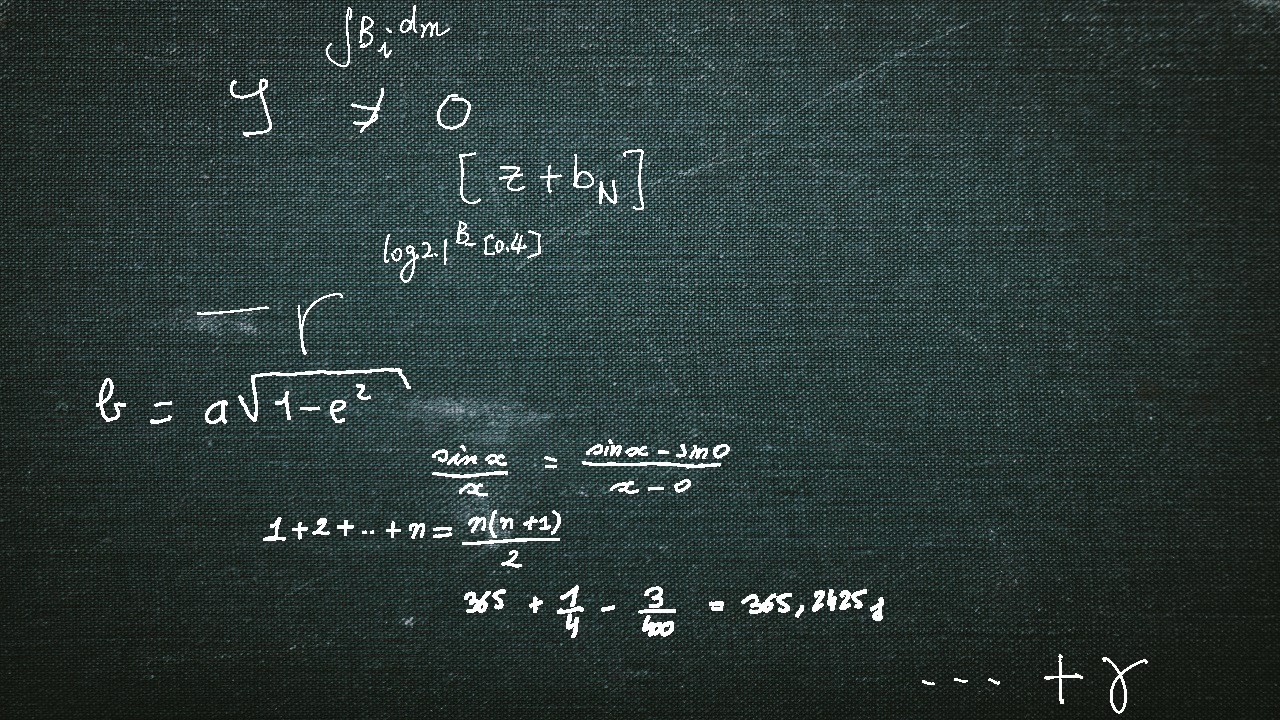 ∫B_i dm
y ≠ 0
[z + b_N]
log 2.1^B [0.4]
− r
b = a√(1−e²)
sin x / x = (sin x − sin 0) / (x − 0)
1+2+..+n = n(n+1) / 2
365 + 1/4 − 3/400 = 365,2425 j
--- + γ